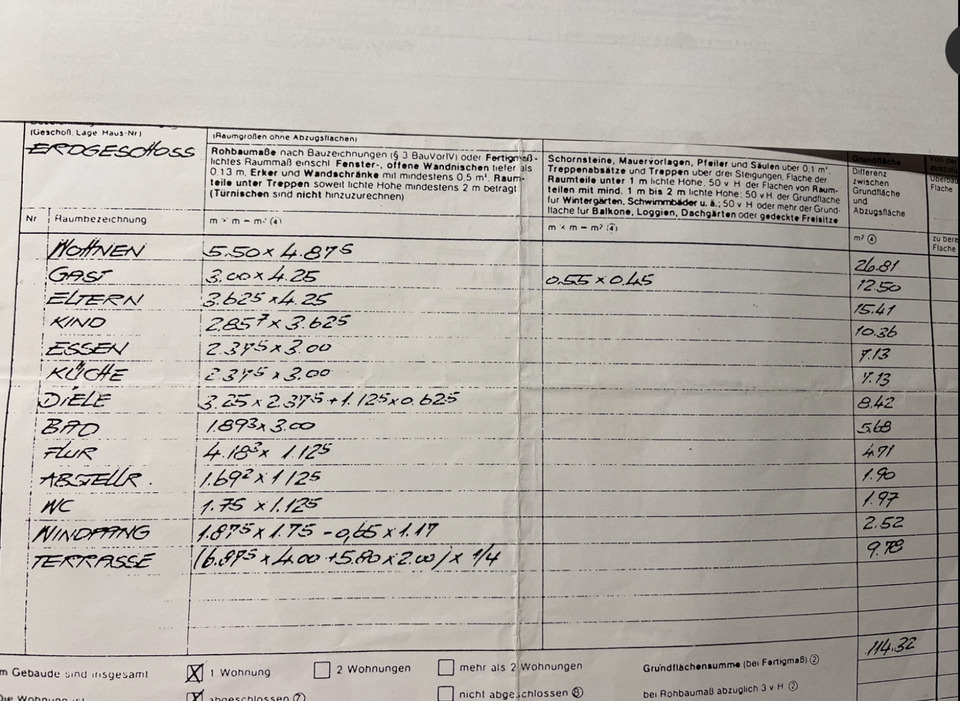 (Geschoß, Lage Haus-Nr)
ERDGESCHOSS
(Raumgrößen ohne Abzugsflächen)
Rohbaumaße nach Bauzeichnungen (§ 3 BauVorlV) oder Fertigmaß-
lichtes Raummaß einschl Fenster-, offene Wandnischen tiefer als
0.13 m, Erker und Wandschränke mit mindestens 0,5 m². Raum-
teile unter Treppen soweit lichte Höhe mindestens 2 m beträgt
(Türnischen sind nicht hinzuzurechnen)
Schornsteine, Mauervorlagen, Pfeiler und Säulen über 0.1 m²,
Treppenabsätze und Treppen über drei Steigungen, Fläche der
Raumteile unter 1 m lichte Höhe, 50 v H der Flächen von Raum-
teilen mit mind. 1 m bis 2 m lichte Höhe; 50 v H. der Grundfläche
für Wintergärten, Schwimmbäder u. ä.; 50 v H oder mehr der Grund-
fläche für Balkone, Loggien, Dachgärten oder gedeckte Freisitze
Grundfläche
Differenz
zwischen
Grundfläche
und
Abzugsfläche
Von der
Fläche
Nr Raumbezeichnung m × m – m² ④ m × m – m² ④ m² ④ zu bere
Fläche
WOHNEN 5.50 × 4.875 26.81
GAST 3.00 × 4.25 0.55 × 0.45 12.50
ELTERN 3.625 × 4.25 15.41
KIND 2.857 × 3.625 10.36
ESSEN 2.375 × 3.00 7.13
KÜCHE 2.375 × 3.00 7.13
DIELE 3.25 × 2.375 + 1.125 × 0.625 8.42
BAD 1.893 × 3.00 5.68
FLUR 4.183 × 1.125 4.71
ABSTELLR. 1.692 × 1.125 1.90
WC 1.75 × 1.125 1.97
WINDFANG 1.875 × 1.75 - 0,65 × 1.17 2.52
TERRASSE (6.875 × 4.00 + 5.80 × 2.00) × 1/4 9.78
114.32
m Gebäude sind insgesamt X 1 Wohnung 2 Wohnungen mehr als 2 Wohnungen Grundflächensumme (bei Fertigmaß) ②
abgeschlossen ⑦ nicht abgeschlossen ⑧ bei Rohbaumaß abzüglich 3 v H. ②